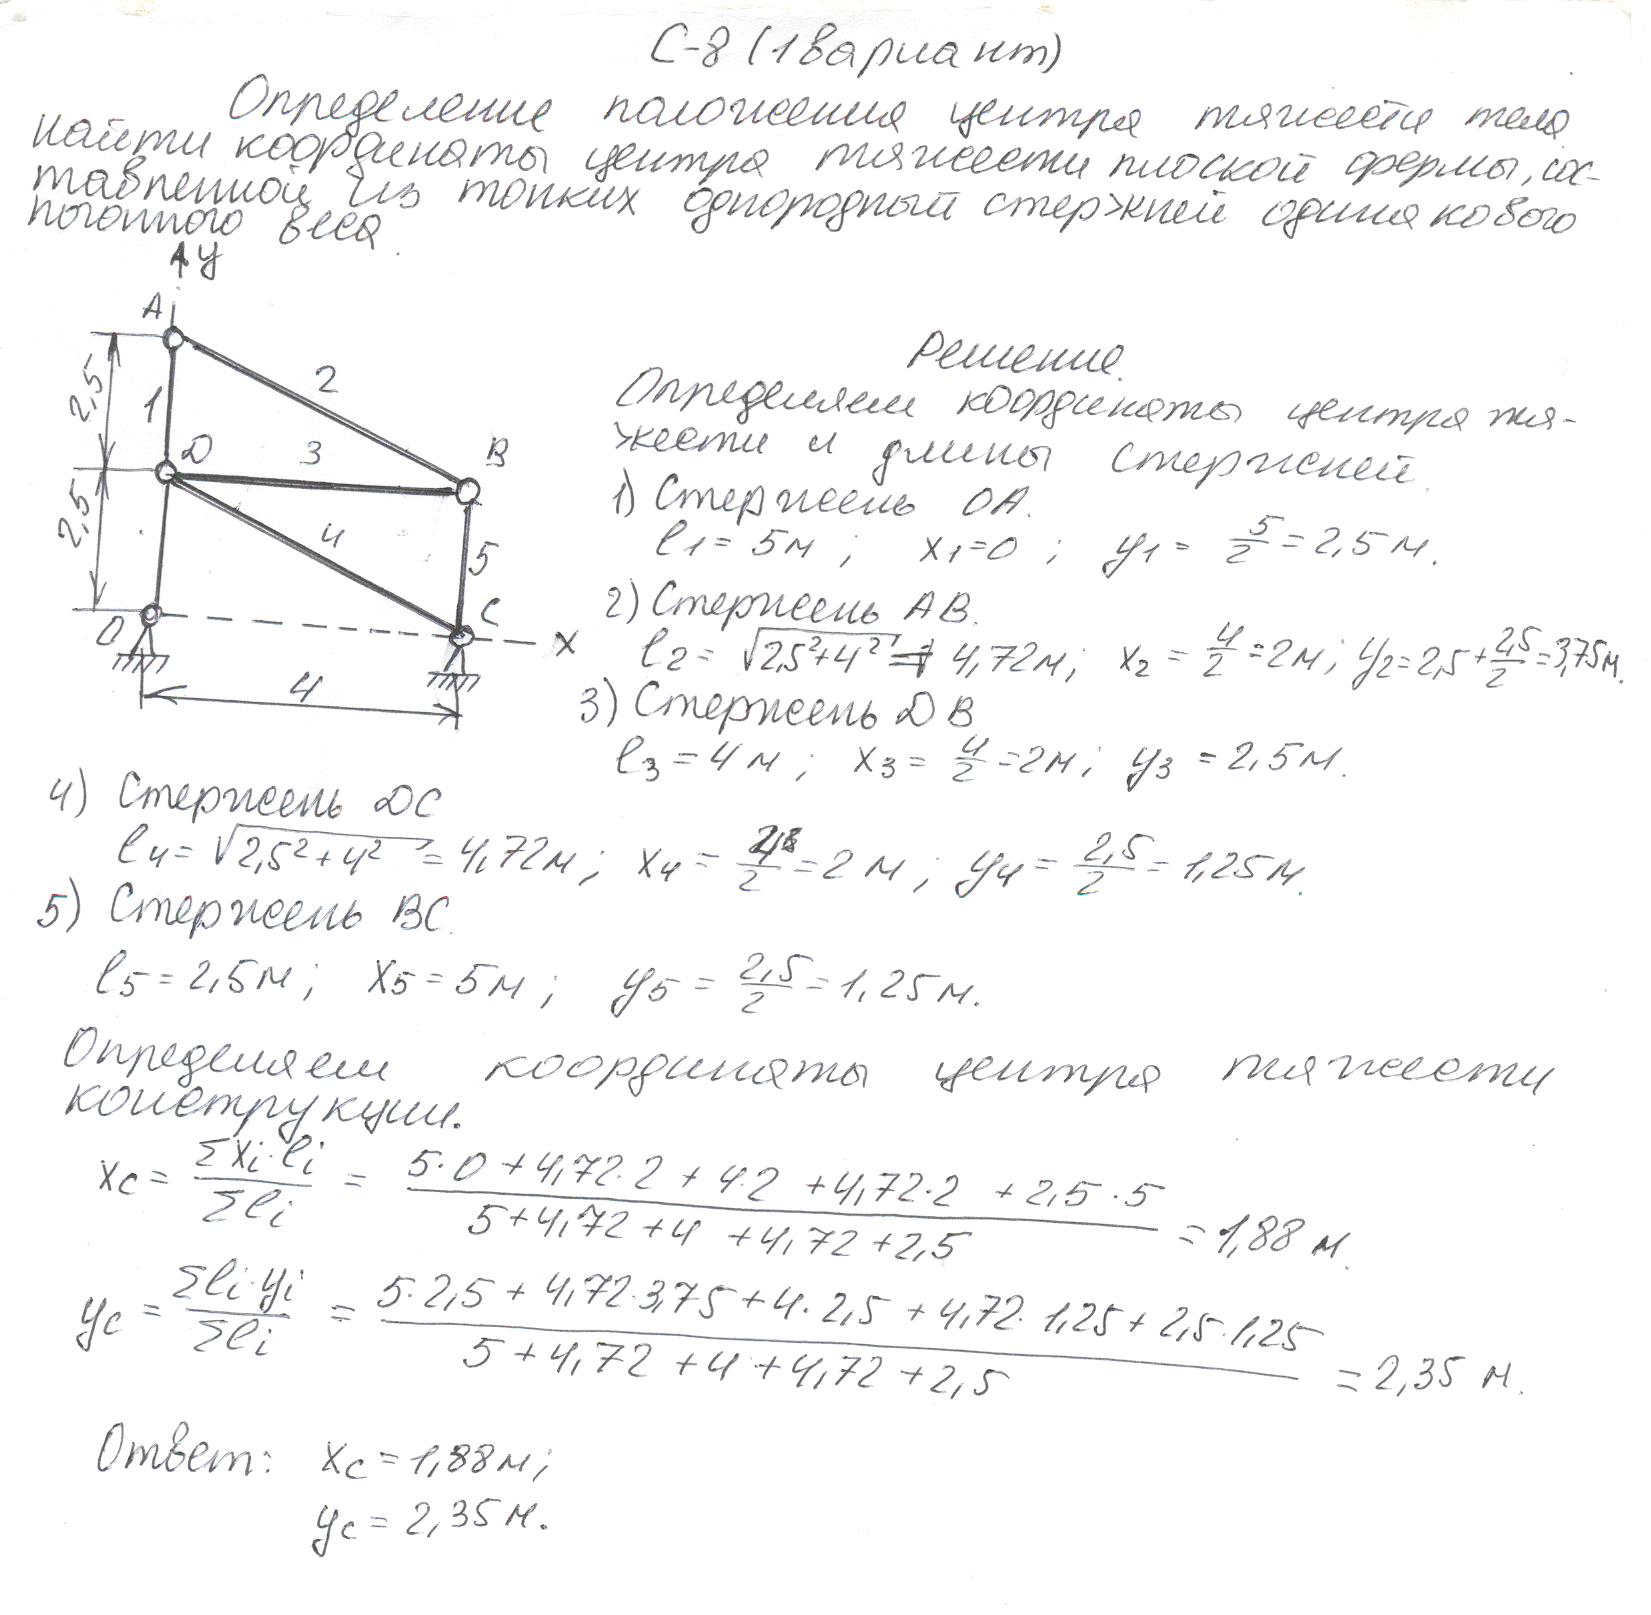 С-8 (1 вариант)
Определение положения центра тяжести тела
Найти координаты центра тяжести плоской фермы, сос-
тавленной из тонких однородный стержней одинакового
погонного веса.
y
A
2,5
1
2
D
3
B
2,5
4
5
O
C
x
4
Решение.
Определяем координаты центра тя-
жести и длины стержней.
1) Стержень OA.
l1 = 5м ; x1=0 ; y1 = 5/2 = 2,5 м.
2) Стержень AB.
l2 = √2,5²+4² = 4,72м; x2 = 4/2 = 2м; y2 = 2,5 + 2,5/2 = 3,75м.
3) Стержень DB
l3 = 4 м ; x3 = 4/2 = 2м; y3 = 2,5м.
4) Стержень DC
l4 = √2,5²+4² = 4,72м; x4 = 4/2 = 2 м ; y4 = 2,5/2 = 1,25м.
5) Стержень BC.
l5 = 2,5м; x5 = 5м ; y5 = 2,5/2 = 1,25м.
Определяем координаты центра тяжести
конструкции.
xc = Σxi·li/Σli = 5·0 + 4,72·2 + 4·2 + 4,72·2 + 2,5·5/5+4,72+4+4,72+2,5 = 1,88 м.
yc = Σli·yi/Σli = 5·2,5 + 4,72·3,75 + 4·2,5 + 4,72·1,25 + 2,5·1,25/5+4,72+4+4,72+2,5 = 2,35 м.
Ответ: xc = 1,88м;
yc = 2,35м.